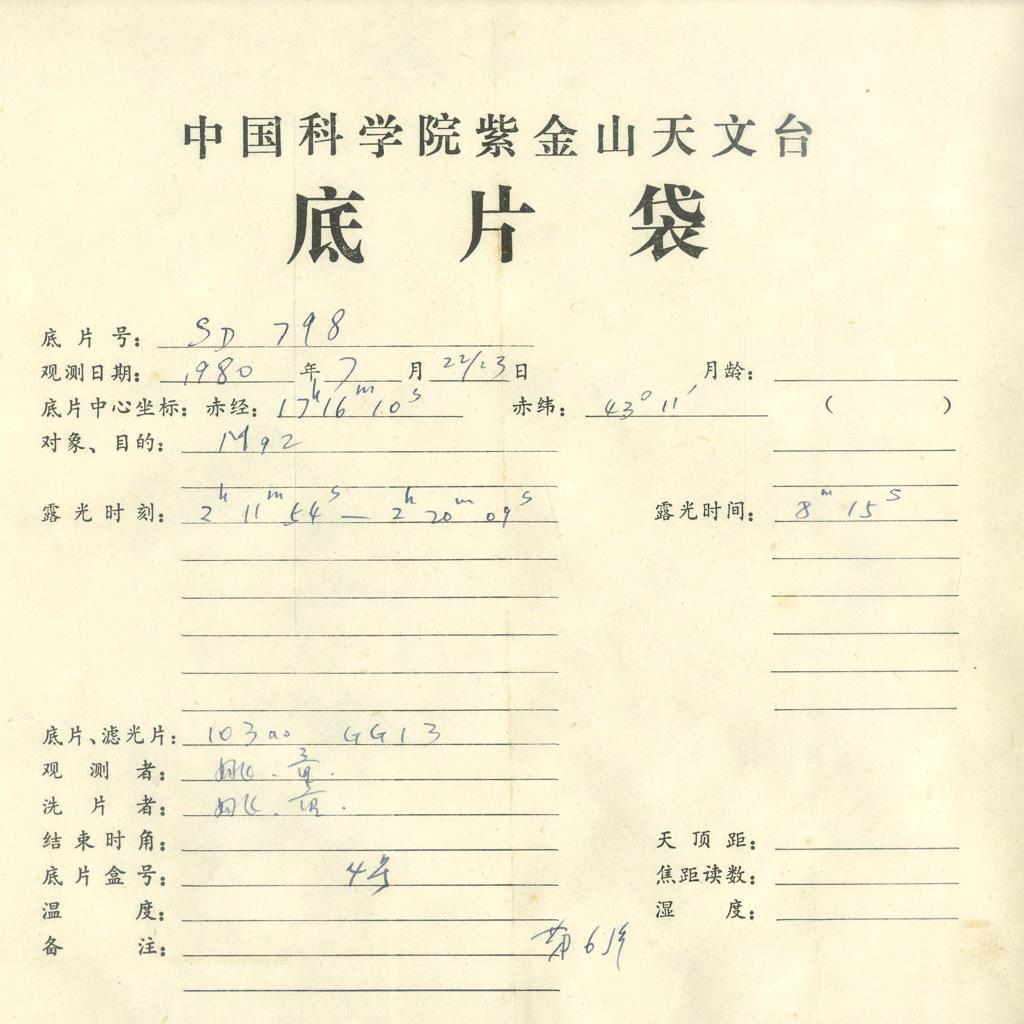 中国科学院紫金山天文台
底片袋
底片号： SD 798
观测日期： 1980 年 7 月 22/23 日 月龄：
底片中心坐标：赤经： 17h16m10s 赤纬： 43°11′ （ ）
对象、目的： M92
露光时刻： 2h 11m 54s — 2h 20m 09s 露光时间： 8m 15s
底片、滤光片： 103a0 GG13
观测者： 姚.
洗片者： 姚.
结束时角： 天顶距：
底片盒号： 4号 焦距读数：
温度： 湿度：
备注： 第6片